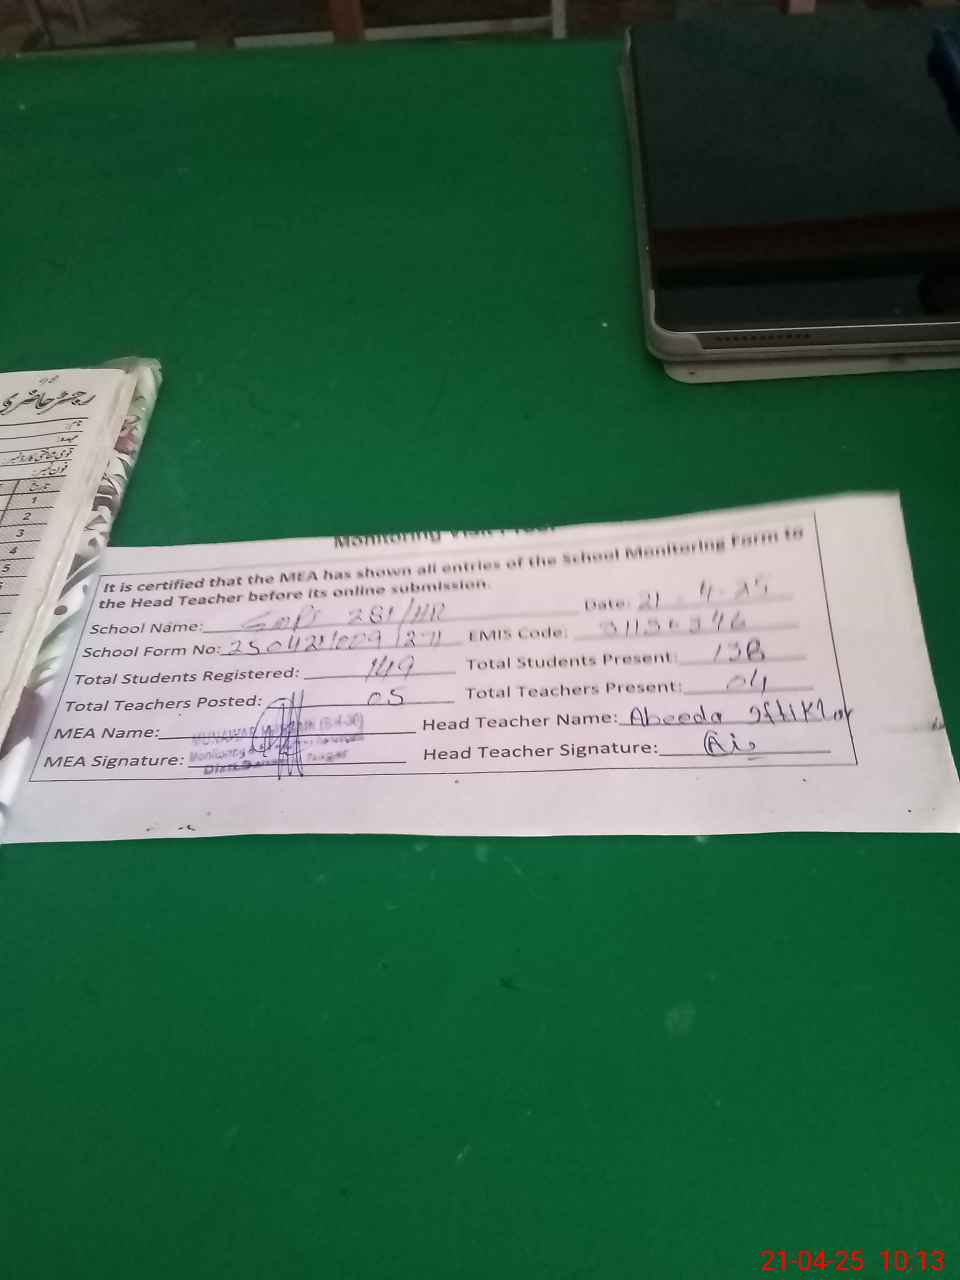 98
رجسٹر حاضری
نام:
عہدہ:
قومی شناختی کارڈ نمبر:
فون نمبر:
تاریخ
1
2
3
4
5
Monitoring Visit Proof
It is certified that the MEA has shown all entries of the School Monitoring Form to
the Head Teacher before its online submission.
School Name: GMPS 281/HR Date: 21-4-25
School Form No: EMIS Code: 31136346
Total Students Registered: 149 Total Students Present: 138
Total Teachers Posted: 05 Total Teachers Present: 04
MEA Name: MUNAWAR Head Teacher Name: Abeeda Iftikhar
MEA Signature: Monitoring Head Teacher Signature:
21-04-25 10:13